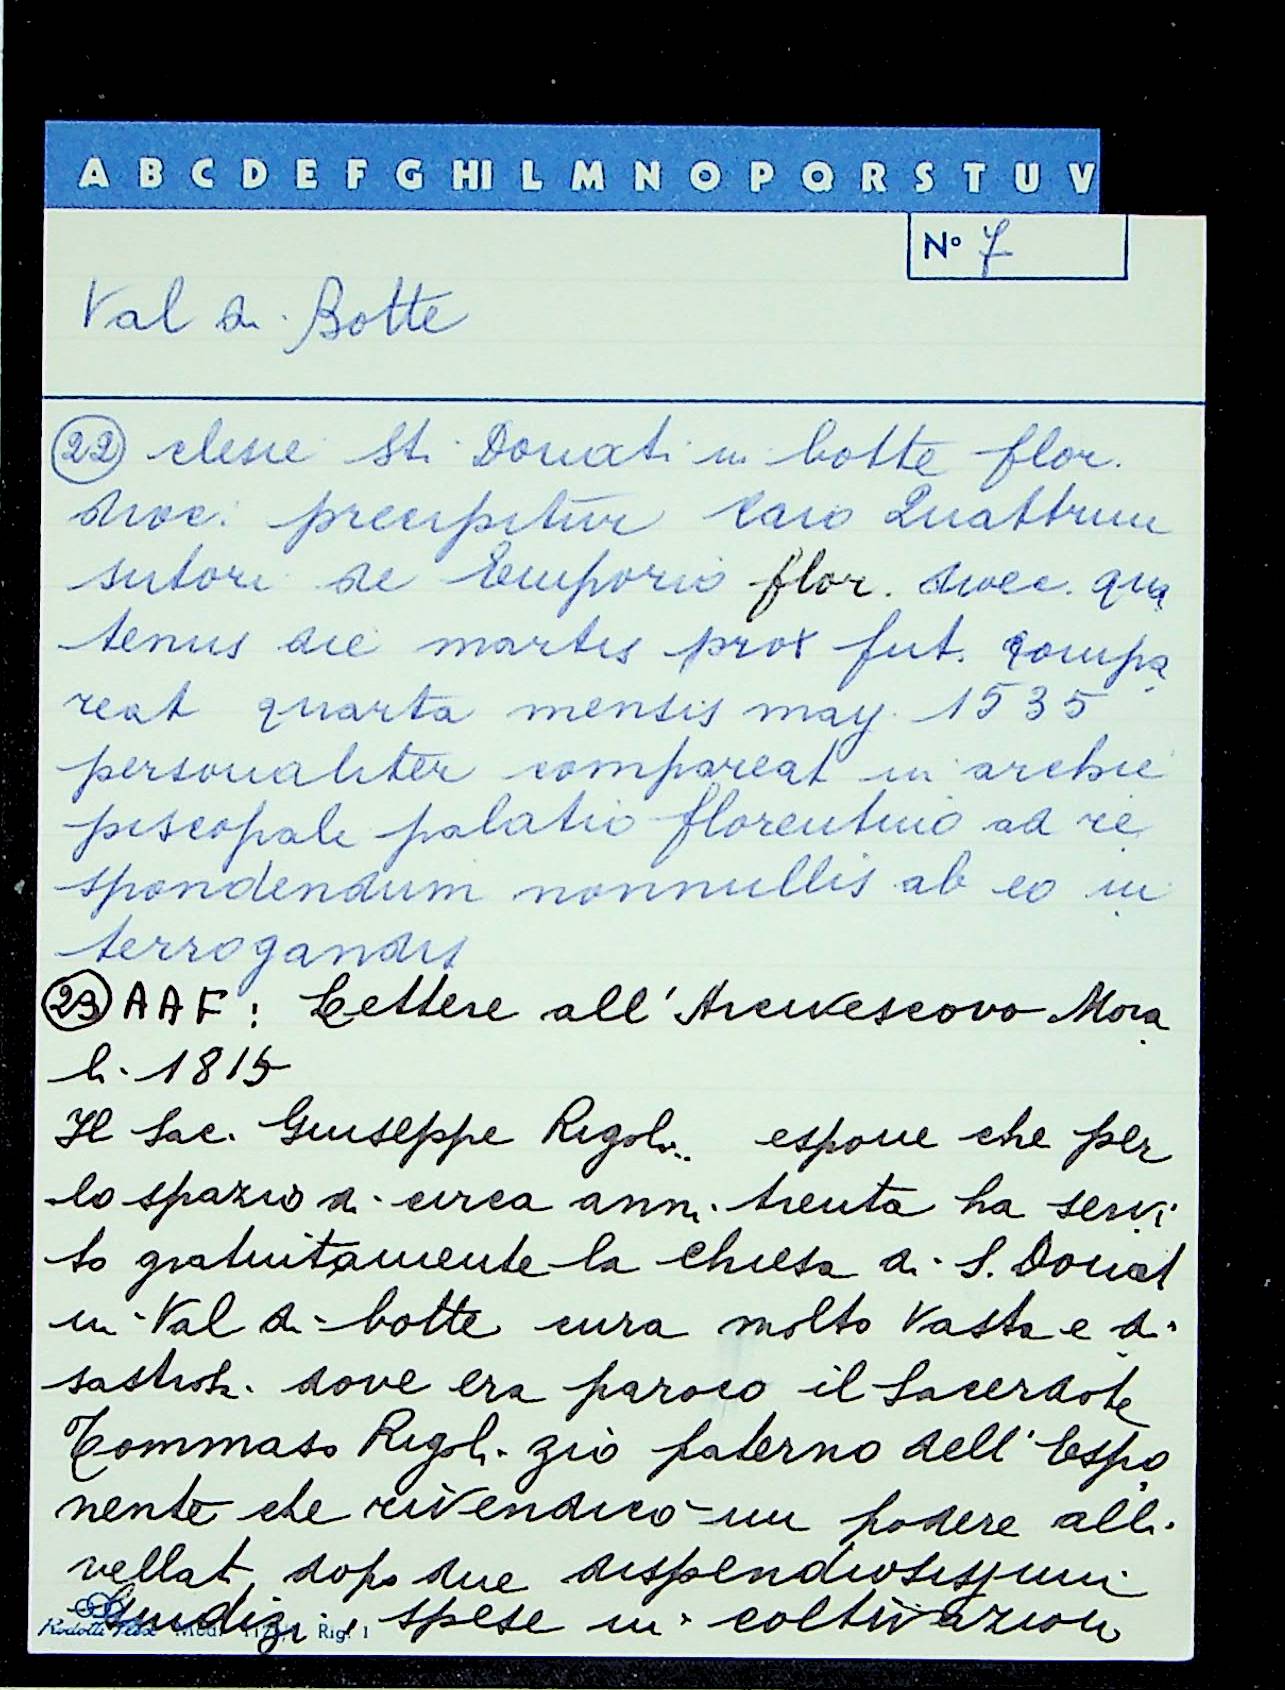 A B C D E F G HI L M N O P Q R S T U V
Nº 7
Val di Botte
22 clesie Sti Donati in botte flor.
dioc. precipitur Caio Quattrini
sutori de Emporio flor. dioec. qua
tenus die martis prox fut. compa
reat quarta mensis may 1535
personaliter compareat in archie
piscopali palatio florentino ad re
spondendum nonnullis ab eo in
terrogandis
23 AAF: Lettere all'Arcivescovo Mora
li 1815
Il Sac. Giuseppe Rigoli espone che per
lo spazio di circa anni trenta ha servi
to gratuitamente la Chiesa di S. Donat
in Val di botte cura molto vasta e di
sastrosa dove era paroco il Sacerdote
Tommaso Rigoli zio paterno dell'Espo
nente che rivendicò un podere alli
vellat dopo due dispendiosissimi
Giudizi, spese in coltivazioni
Rig. 1